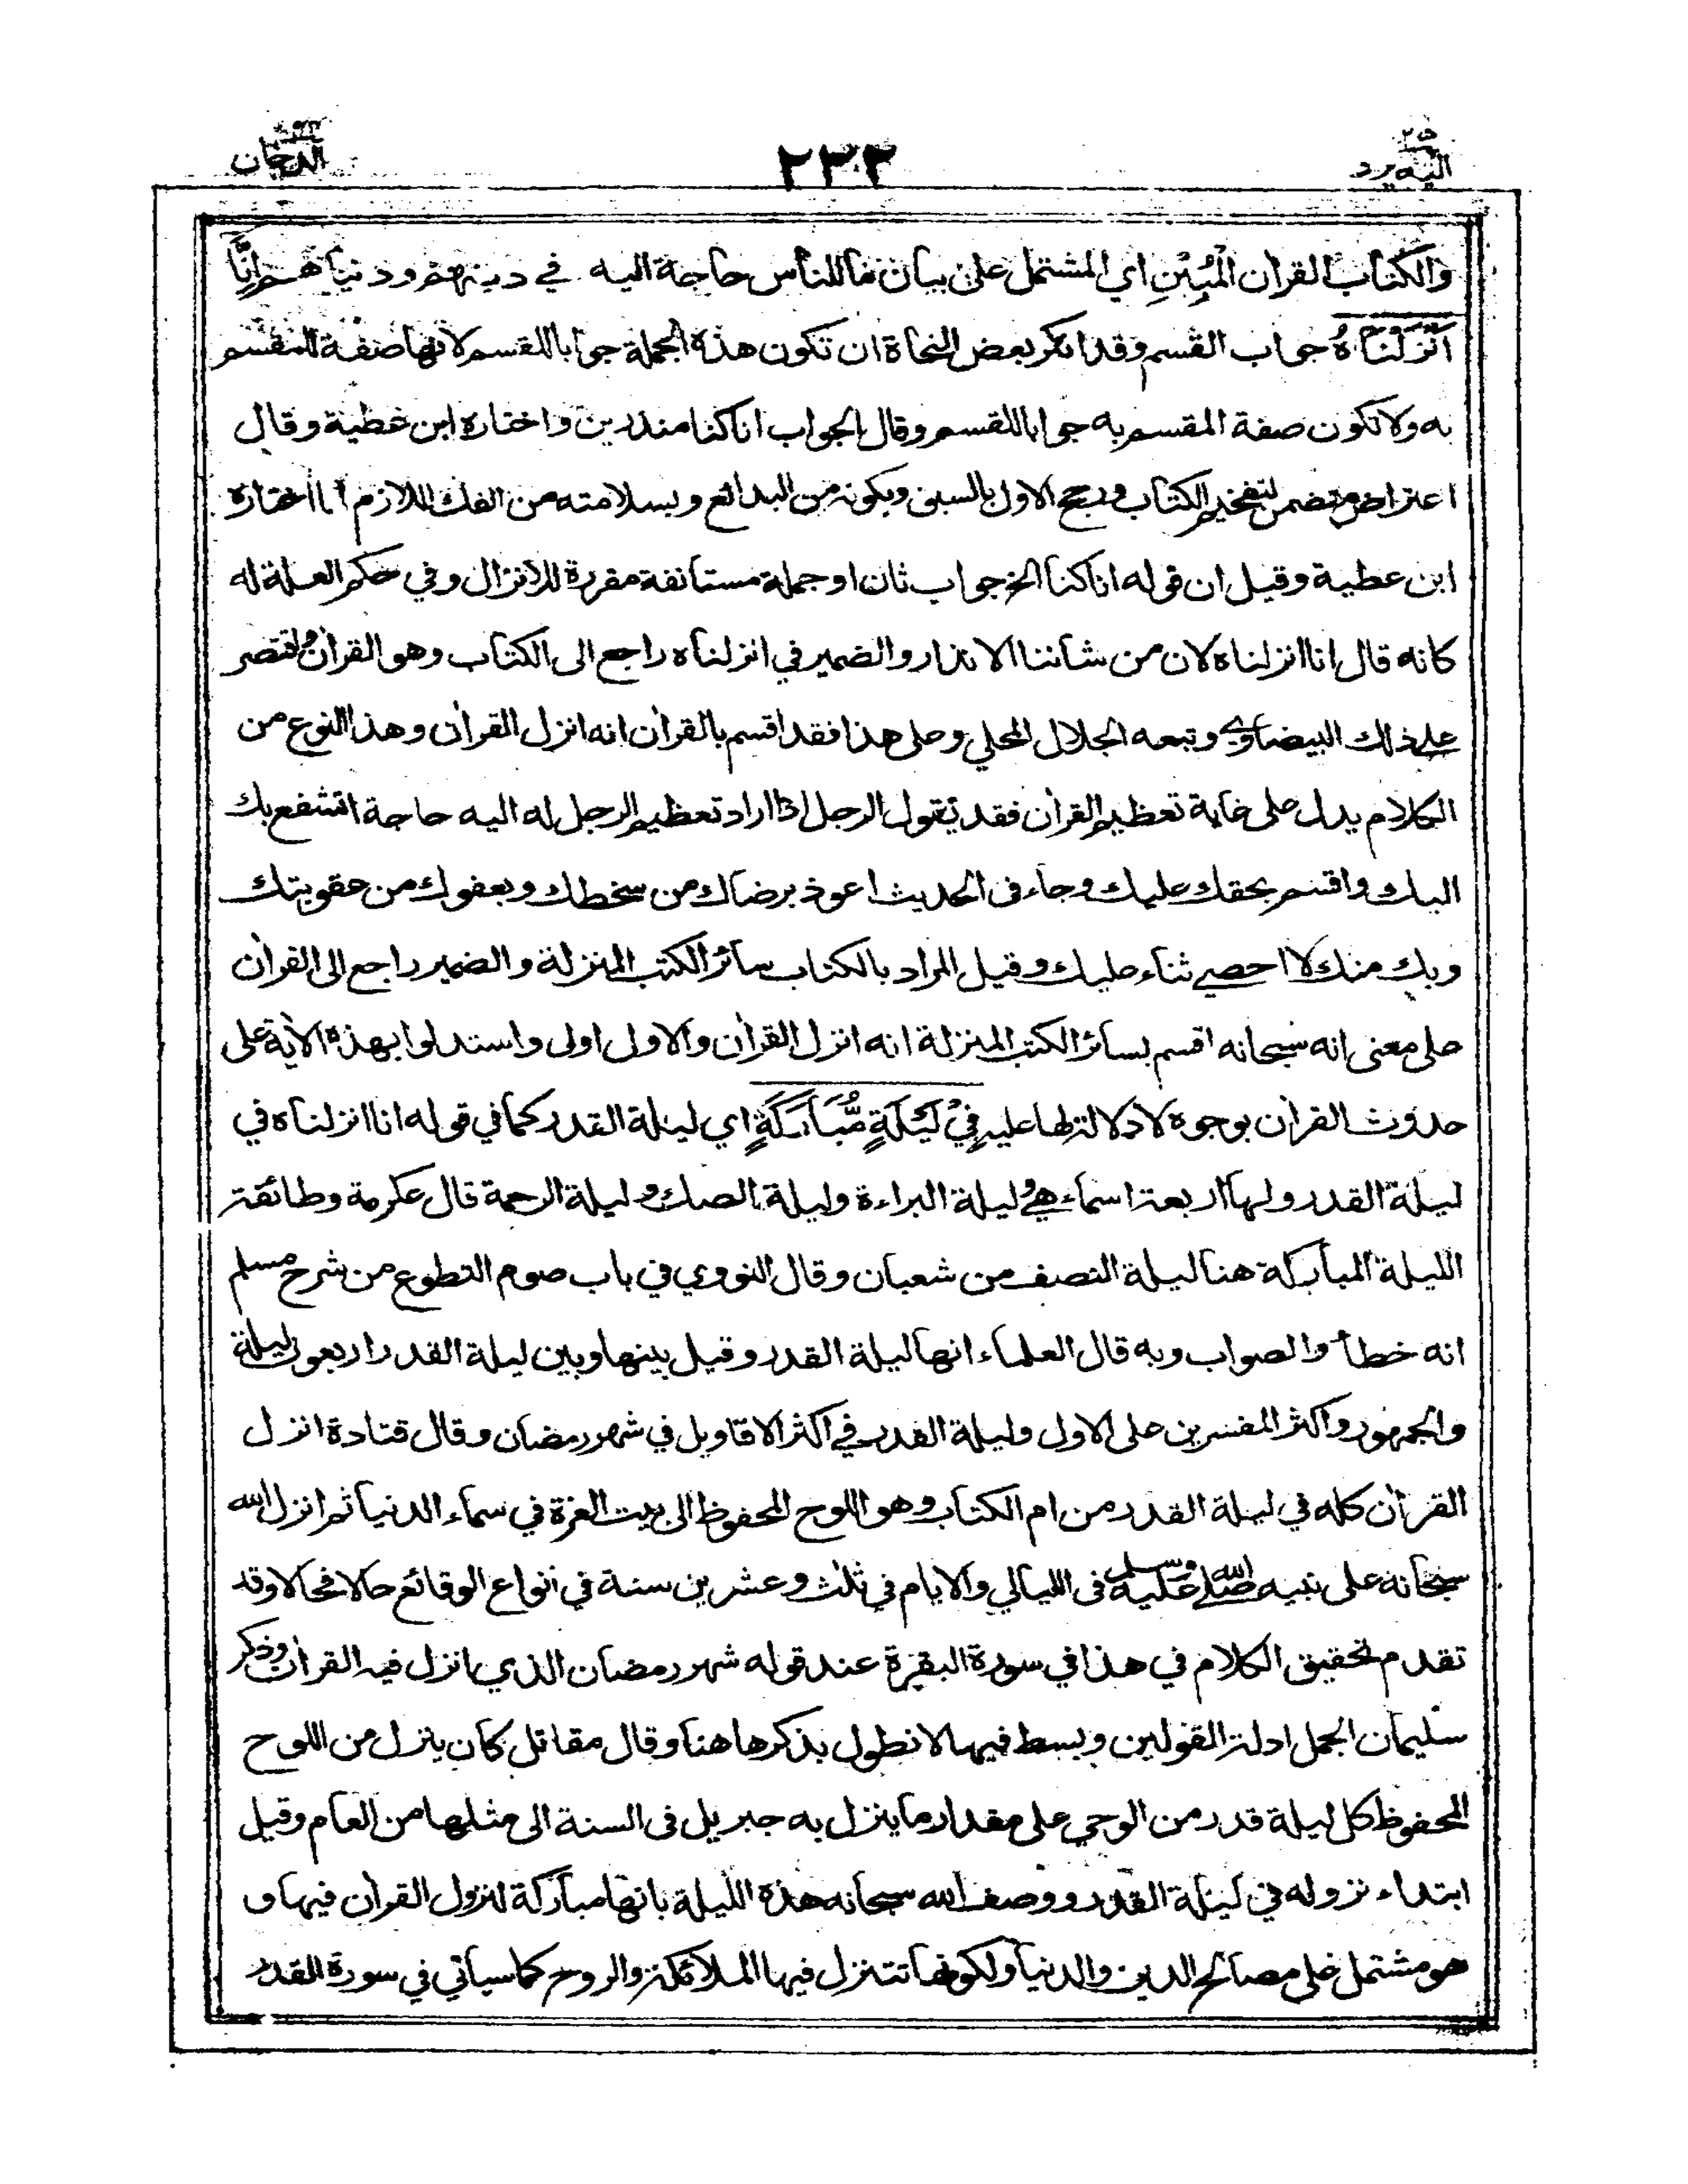 اليه يرد ٢٥
٢٣٢
الدخان
والكتاب القرأن الْمُبِيْنِ اي المشتمل على بيان ما للناس حاجة اليه في دينهم ودنياهم إِنَّا
أَنْزَلْنَاهُ جواب القسم وقد انكر بعض النحاة ان تكون هذه الجملة جوابا للقسم لانها صفة للمقسم
به ولا تكون صفة المقسم به جوابا للقسم وقال الجواب انا كنا منذرين واختاره ابن عطية وقال
اعتراض متضمن لتفخيم الكتاب ورجح الاول بالسبق وبكونه من البدائع وبسلامته من الفك اللازم لما اختاره
ابن عطية وقيل ان قوله انا كنا الخ جواب ثان او جملة مستانفة مقررة للانزال وفي حكم العلة له
كانه قال انا انزلناه لان من شاننا الانذار والضمير في انزلناه راجع الى الكتاب وهو القرأن واقتصر
على ذلك البيضاوي وتبعه الجلال المحلي وعلى هذا فقد اقسم بالقرأن انه انزل القرأن وهذا النوع من
الكلام يدل على غاية تعظيم القرأن فقد تقول الرجل اذا اراد تعظيم الرجل له اليه حاجة اتشفع بك
اليك واقسم بحقك عليك وجاء في الحديث اعوذ برضاك من سخطك وبعفوك من عقوبتك
وبك منك لا احصي ثناء عليك وقيل المراد بالكتاب سائر الكتب المنزلة والضمير راجع الى القرأن
على معنى انه سبحانه اقسم بسائر الكتب المنزلة انه انزل القرأن والاول اولى واستدلوا بهذه الاية على
حدوث القرأن بوجوه لا دلالة لها عليه فِيْ لَيْلَةٍ مُّبَارَكَةٍ اي ليلة القدر كما في قوله انا انزلناه في
ليلة القدر ولها اربعة اسماء هي وليلة البراءة وليلة الصك وليلة الرحمة قال عكرمة وطائفة
الليلة المباركة هنا ليلة النصف من شعبان وقال النووي في باب صوم التطوع من شرح مسلم
انه خطأ والصواب وبه قال العلماء انها ليلة القدر وقيل بينها وبين ليلة القدر اربعون ليلة
والجمهور واكثر المفسرين على الاول وليلة القدر في اكثر الاقاويل في شهر رمضان وقال قتادة انزل
القرأن كله في ليلة القدر من ام الكتاب وهو اللوح المحفوظ الى بيت العزة في سماء الدنيا ثم انزل الله
سبحانه على نبيه صلى الله عليه وسلم في الليالي والايام في ثلث وعشرين سنة في انواع الوقائع حالا فحالا وقد
تقدم تحقيق الكلام في هذا في سورة البقرة عند قوله شهر رمضان الذي انزل فيه القرأن وذكر
سليمان الجمل ادلة القولين وبسط فيها لا نطول بذكرها هنا وقال مقاتل كان ينزل من اللوح
المحفوظ كل ليلة قدر من الوحي على مقدار ما ينزل به جبريل في السنة الى مثلها من العام وقيل
ابتداء نزوله في ليلة القدر ووصف الله سبحانه هذه الليلة بانها مباركة لنزول القرأن فيها و
هو مشتمل على مصالح الدين والدنيا ولكونها تتنزل فيها الملائكة والروح كما سياتي في سورة القدر